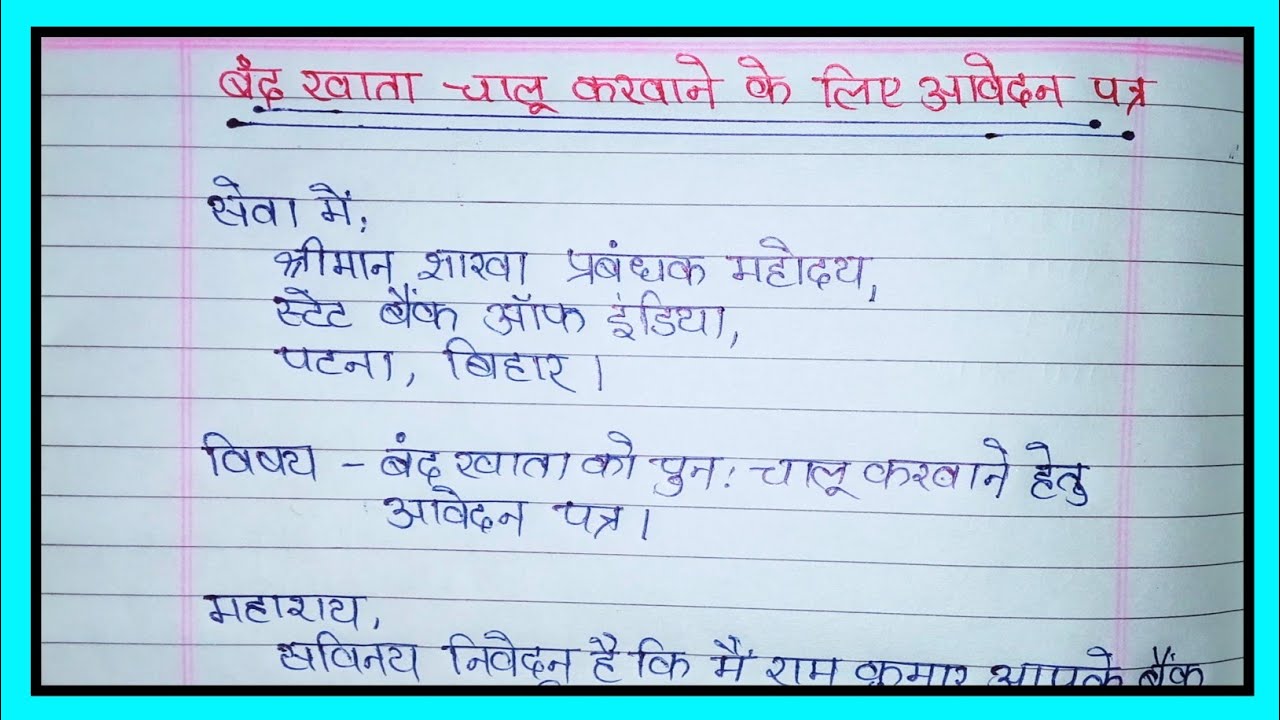 बंद खाता चालू करवाने के लिए आवेदन पत्र
सेवा में,
श्रीमान् शाखा प्रबंधक महोदय,
स्टेट बैंक ऑफ इंडिया,
पटना, बिहार।
विषय - बंद खाता को पुन: चालू करवाने हेतु
आवेदन पत्र।
महाशय,
सविनय निवेदन है कि मैं राम कुमार आपके बैंक